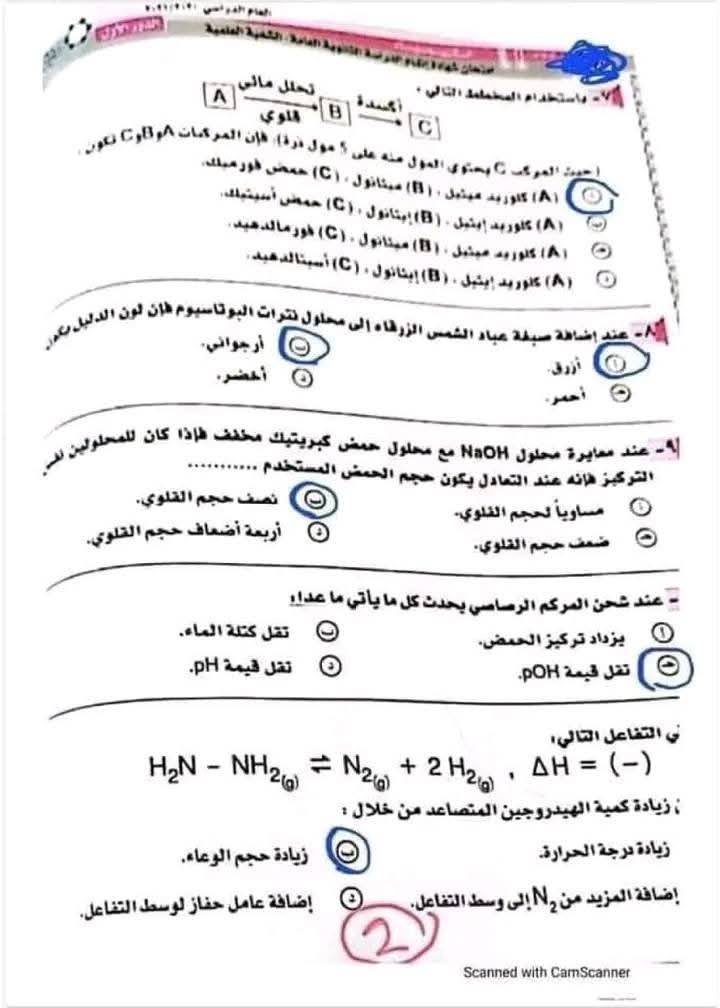 العام الدراسي ٢٠٢٠/٢٠٢١
الدور الأول
امتحان شهادة إتمام الدراسة الثانوية العامة - الشعبة العلمية
٧- باستخدام المخطط التالي :
A تحلل مائي قلوي B أكسدة C
(حيث المركب C يحتوي المول منه على 5 مول ذرة). فإن المركبات A و B و C تكون
أ (A) كلوريد ميثيل ، (B) ميثانول ، (C) حمض فورميك.
ب (A) كلوريد إيثيل ، (B) إيثانول ، (C) حمض أسيتيك.
جـ (A) كلوريد ميثيل ، (B) ميثانول ، (C) فورمالدهيد.
د (A) كلوريد إيثيل ، (B) إيثانول ، (C) أسيتالدهيد.
٨- عند إضافة صبغة عباد الشمس الزرقاء إلى محلول نترات البوتاسيوم فإن لون الدليل يكون
أ أزرق. ب أرجواني.
جـ أحمر. د أخضر.
٩- عند معايرة محلول NaOH مع محلول حمض كبريتيك مخفف فإذا كان للمحلولين نفس
التركيز فإنه عند التعادل يكون حجم الحمض المستخدم ...........
أ مساوياً لحجم القلوي. ب نصف حجم القلوي.
جـ ضعف حجم القلوي. د أربعة أضعاف حجم القلوي.
- عند شحن المركم الرصاصي يحدث كل ما يأتي ما عدا:
أ يزداد تركيز الحمض. ب تقل كتلة الماء.
جـ تقل قيمة pOH. د تقل قيمة pH.
ي التفاعل التالي:
H₂N – NH₂(g) ⇌ N₂(g) + 2 H₂(g) , ΔH = (−)
زيادة كمية الهيدروجين المتصاعد من خلال :
زيادة درجة الحرارة. ب زيادة حجم الوعاء.
إضافة المزيد من N₂ إلى وسط التفاعل. د إضافة عامل حفاز لوسط التفاعل.
2
Scanned with CamScanner